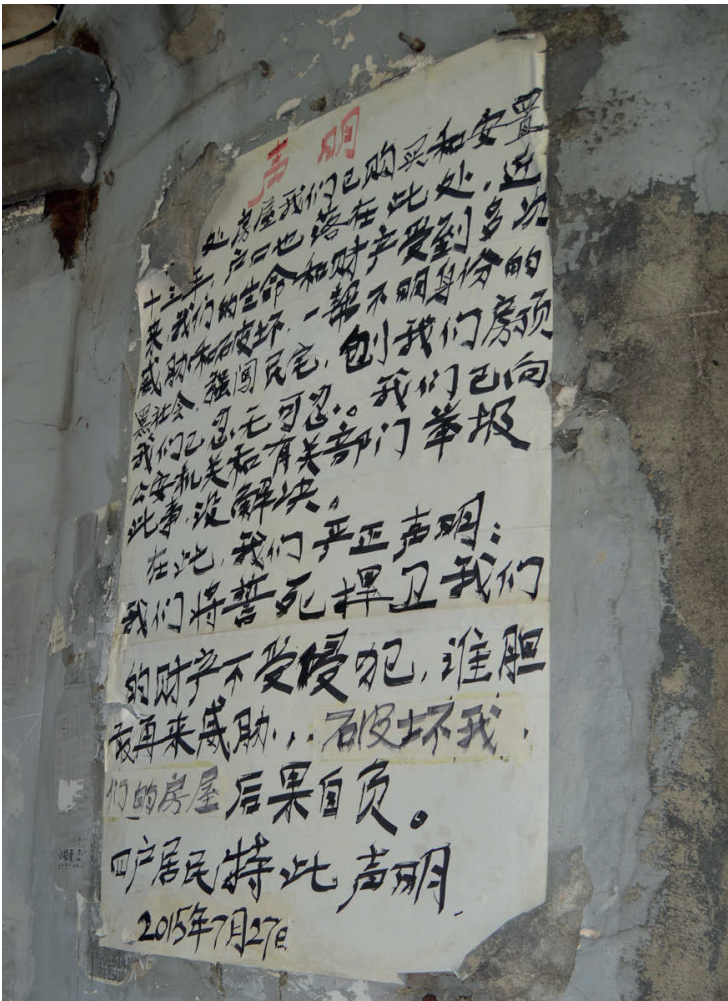 声明
处房屋我们已购买和安置
十三年,户口也落在此处,近
来,我们的生命和财产受到多次
威助和破坏,一帮不明身份的
黑社会,强闯民宅,刨我们房顶
我们已忍无可忍。我们已向
公安机关和有关部门举报
此事,没解决。
在此,我们严正声明:
我们将誓死捍卫我们
的财产不受侵犯,谁胆
敢再来威助...破坏我
们的房屋后果自负。
四户居民特此声明
2015年7月27日